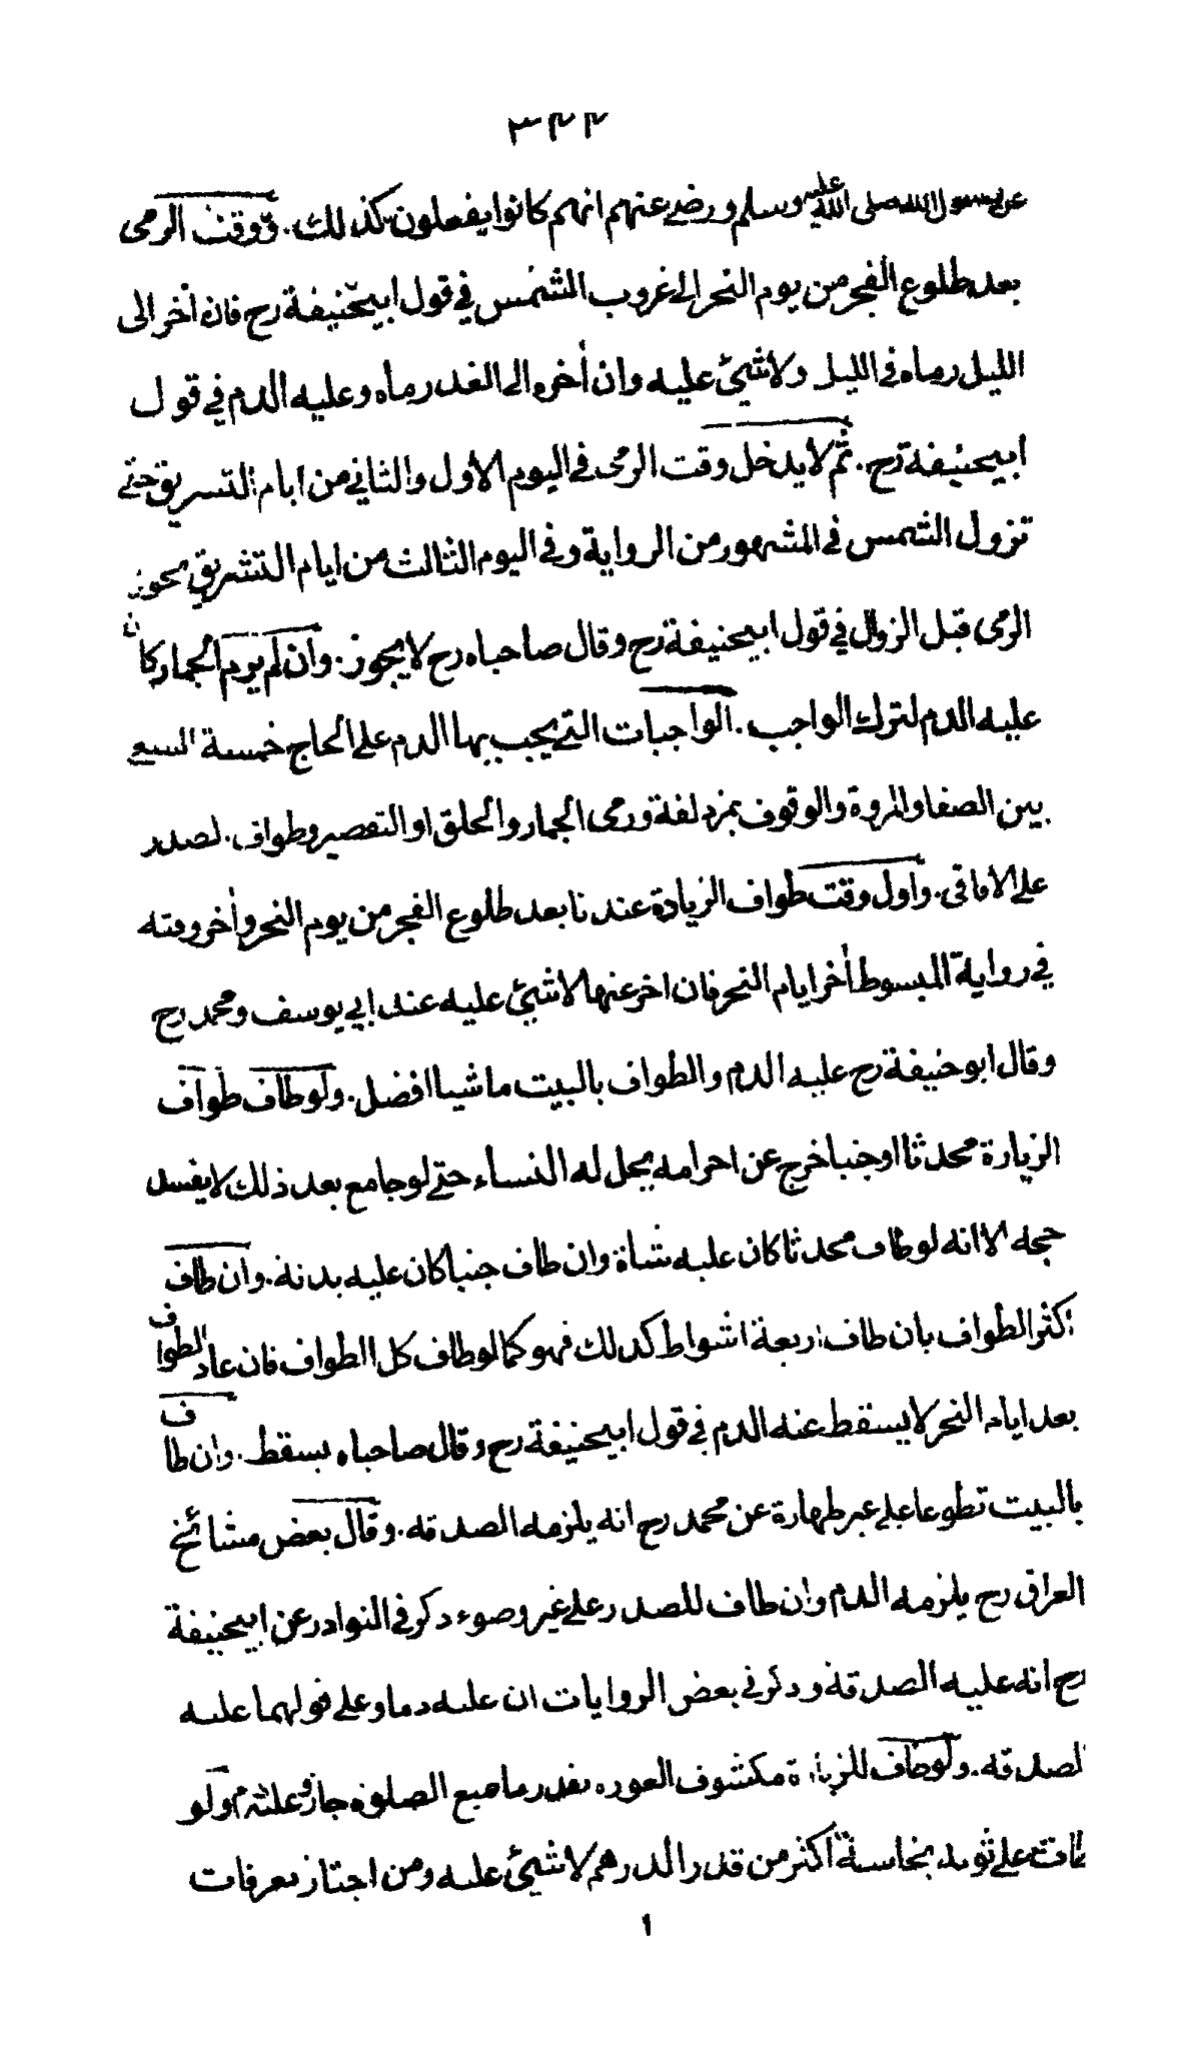 ٣٢٢
عن رسول الله صلى الله عليه وسلم ورضي عنهم انهم كانوا يفعلون كذلك. ووقت الرمى
بعد طلوع الفجر من يوم النحر الى غروب الشمس في قول ابيحنيفة رح فان أخر الى
الليل رماه في الليل ولا شيئ عليه وان أخره الى الغد رماه وعليه الدم في قول
ابيحنيفة رح. ثم لا يدخل وقت الرمى في اليوم الأول والثاني من ايام التسريق حتى
تزول الشمس في المشهور من الرواية وفي اليوم الثالث من ايام التشريق يجوز
الرمى قبل الزوال في قول ابيحنيفة رح وقال صاحباه رح لا يجوز. وان لم يرم الجمار كان
عليه الدم لترك الواجب. الواجبات التي يجب بها الدم على الحاج خمسة السعي
بين الصفا والمروة والوقوف بمزدلفة ورمى الجمار والحلق او التقصير وطواف لصدر
على الافاقى. واول وقت طواف الزيادة عندنا بعد طلوع الفجر من يوم النحر وأخر وقته
في رواية المبسوط أخر ايام النحر فان اخر عنها لا شيئ عليه عند ابي يوسف ومحمد رح
وقال ابو حنيفة رح عليه الدم والطواف بالبيت ماشيا افضل. ولو طاف طواف
الزيارة محدثا او جنبا خرج عن احرامه يحل له النساء حتى لو جامع بعد ذلك لا يفسد
حجه الا انه لو طاف محدثا كان عليه شاة وان طاف جنبا كان عليه بدنة. وان طاف
اكثر الطواف بان طاف اربعة اشواط كذلك فهو كما لو طاف كل الطواف فان عاد الطواف
بعد ايام النحر لا يسقط عنه الدم في قول ابيحنيفة رح وقال صاحباه يسقط. وان طاف
بالبيت تطوعا على غير طهارة عن محمد رح انه يلزمه الصدقه. وقال بعض مشائخ
العراق رح يلزمه الدم وان طاف للصدر على غير وضوء ذكر في النوادر عن ابيحنيفة
رح انه عليه الصدقة وذكر في بعض الروايات ان عليه دما وعلى قولهما عليه
لصدقه. ولو طاف للزيارة مكشوف العوره بقدر ما صبع الصلوة جاز وعليه دم ولو
طاف على ثوبه نجاسة أكثر من قدر الدرهم لا شيئ عليه ومن اجتاز بعرفات
١